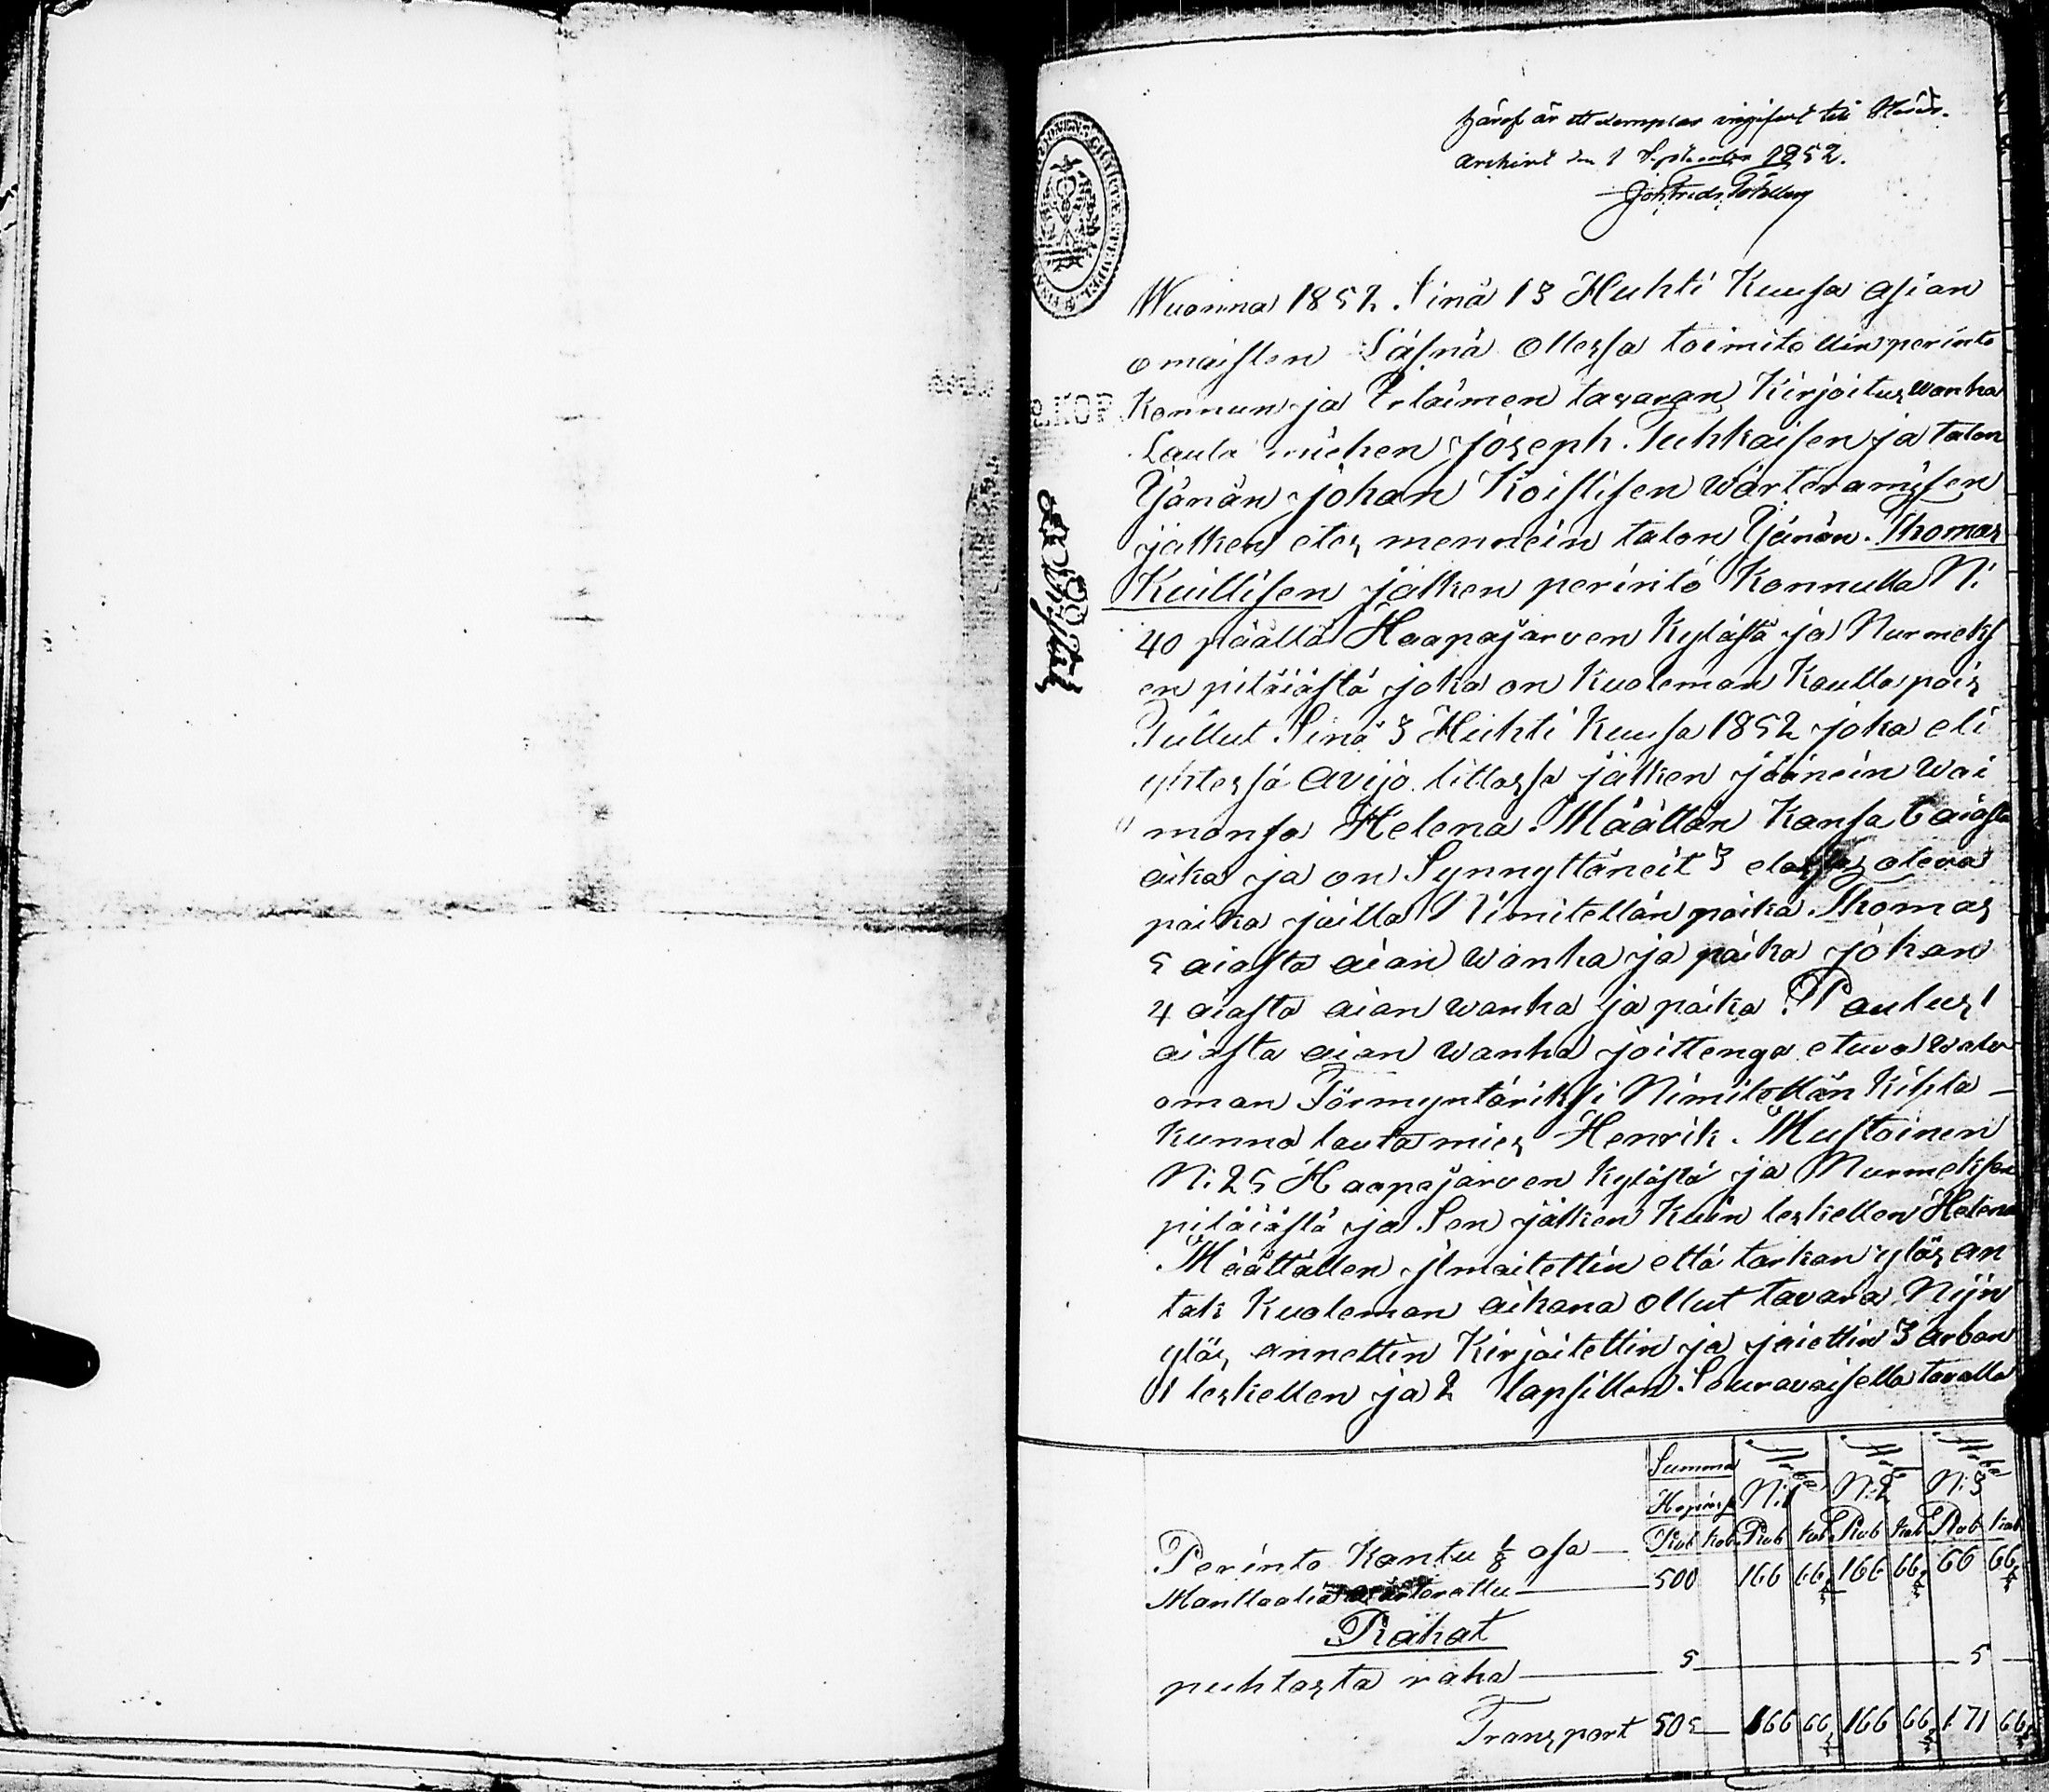 Häraf är ett exemplar ingifvet till Härads
archivet den 1 September 1852.
Joh. Fredr.
Wuonna 1852. Sinä 13 Huhti Kuusa asian
omaisten Läsnä ollessa toimitettin perintö
Konnun ja Irtaimen tavaran Kirjoitus wanha
Lauta miehen Joseph. Tuhkaisen ja talon
Ysänän Johan Koistisen wärteramisen
jälken edes mennein talon Ysänän. Thomas
Kuillisen jälken perintö Konnulla N:
40 päältä Haapajarven Kylästä ja Nurmeks
en pitäiästä joka on Kuoleman Kautta pois
Tullut Sinä 3 Huhti Kuusa 1852 joka eli
yhtessä avijo litossa jälken jäänein wai
monsa Helena. Määttän Kansa 6 aiasta
aika ja on Synnyttäneit 3 elossa oleva
poika joilla Nimitellän poika. Thomas
5 aiasta aian wanha ja poika Johan
4 aiasta aian wanha ja poika. Paulus 1
aiasta aian wanha joittenga etuva walv
oman Förmyntäriksi Nimitettän Kihla-
kunna lautamies Henrik. Mustoinen
N: 25 Haapajärven Kylästä ja Nurmeksen
pitäiästä ja Sen jälken Kuin leskellen Helena
Määttällen ilmoitettin että tarkan ylös an
tak Kuoleman aikana ollut tavara Nijn
ylös annettin Kirjoitettin ja jaiettin 3 arban
1 leskellen ja 2 lapsillen Seuravaisella tavalla
Summa Arba Arba Arba
Hopiassa N:1 N:2 N:3
Rub Kop Rub Kop Rub Kop Rub Kop
Perintö Kontu 1/8 osa
Manttaalia wärterattu 500 166 66 2/3 166 66 2/3 66 66 2/3
Rahat
puhtasta raha 5 5
Transport 505 166 66 2/3 166 66 2/3 171 66 2/3